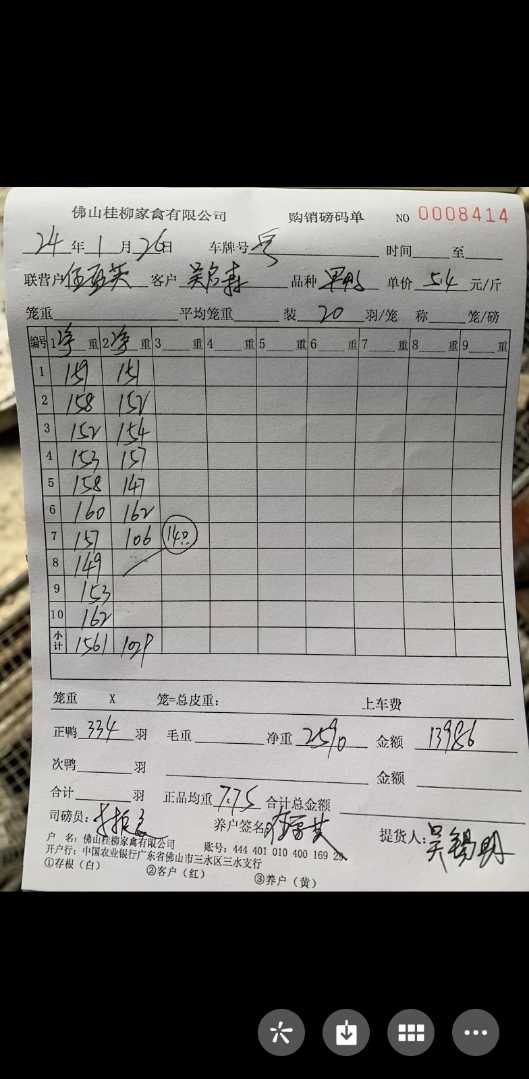 佛山桂柳家禽有限公司 购销磅码单 NO 0008414
24年1月26日 车牌号 时间 至
联营户 客户 品种 单价 5.4 元/斤
笼重 平均笼重 装 20 羽/笼 称 笼/磅
编号 1 净 重 2 净 重 3 重 4 重 5 重 6 重 7 重 8 重 9 重
1 159 151
2 158 152
3 152 154
4 153 157
5 158 147
6 160 162
7 157 106 14只
8 149
9 153
10 162
小计 1561 1029
笼重 X 笼=总皮重: 上车费
正鸭 334 羽 毛重 净重 2590 金额 13986
次鸭 羽 金额
合计 羽 正品均重 7.75 合计总金额
司磅员: 养户签名: 提货人: 吴锡明
户 名: 佛山桂柳家禽有限公司 账号: 444 401 010 400 169 20
开户行: 中国农业银行广东省佛山市三水区三水支行
①存根(白) ②客户(红) ③养户(黄)